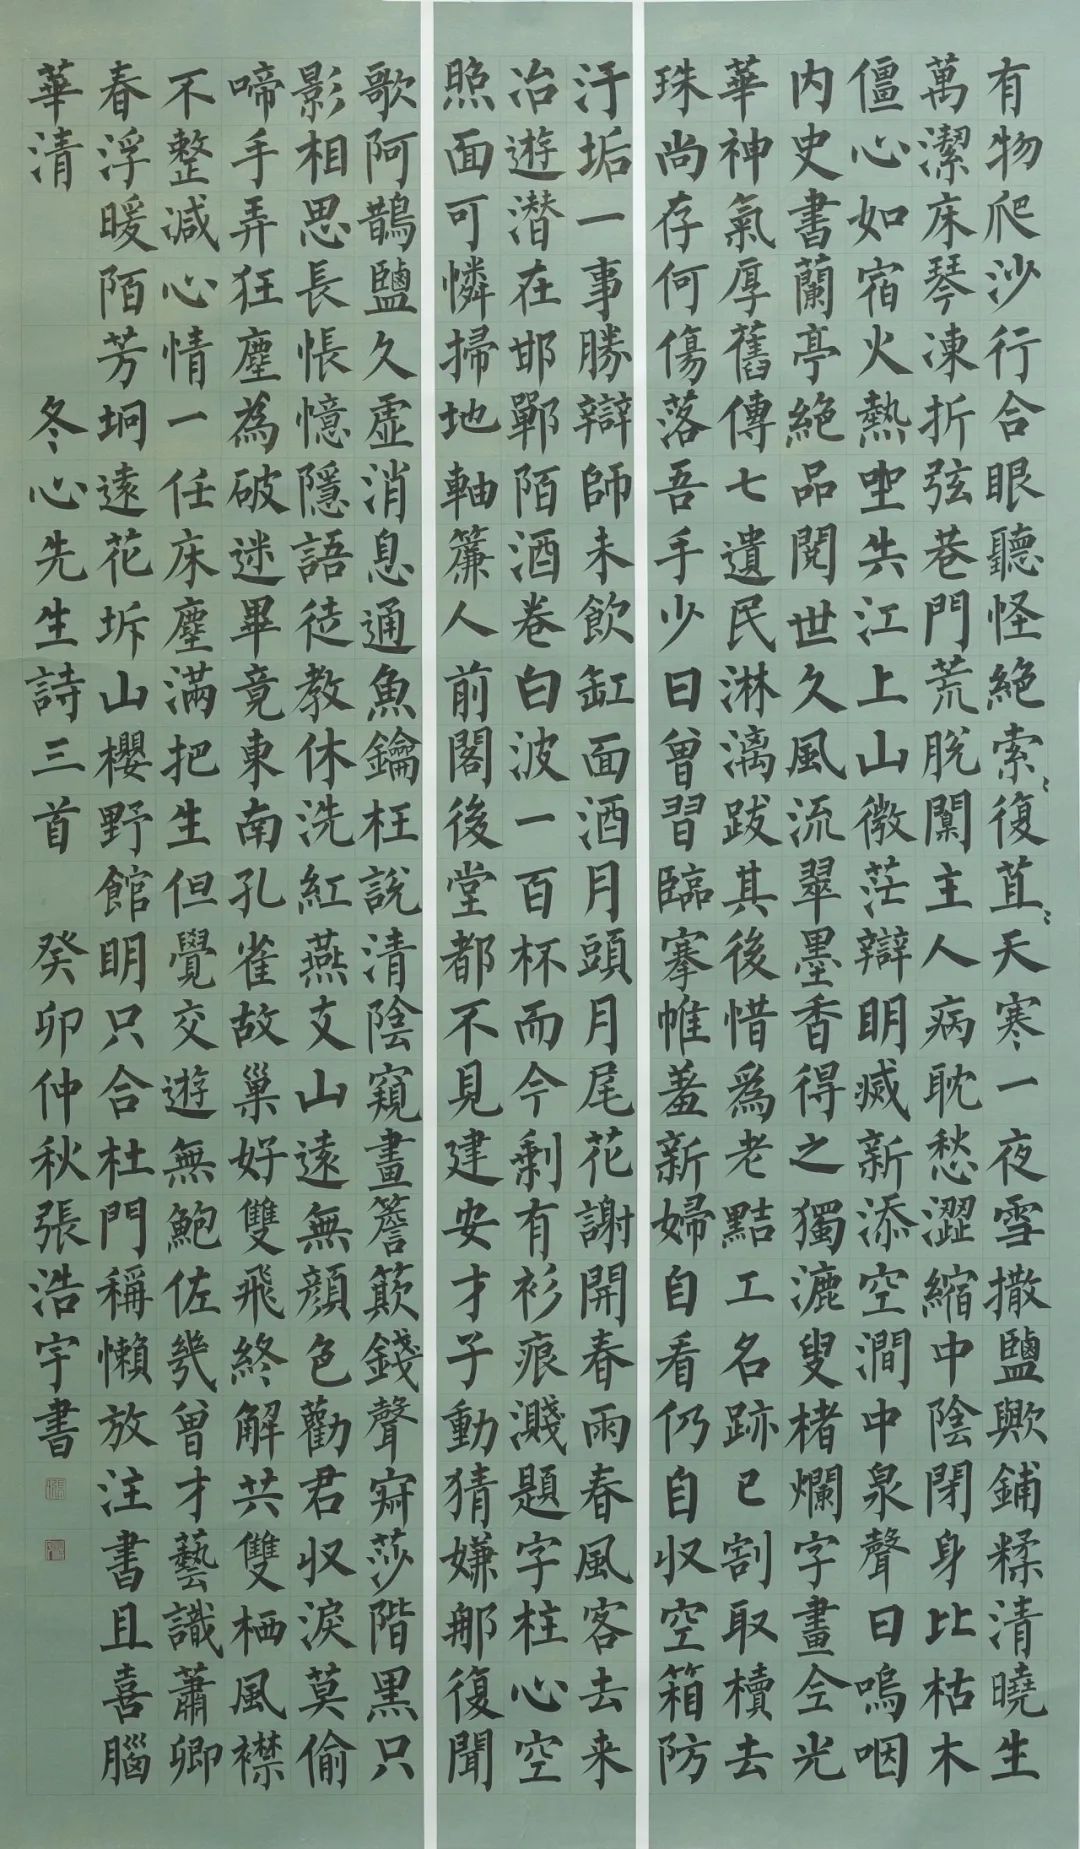 有物爬沙行合眼聽怪絕索復苴天寒一夜雪撒鹽歟鋪糅清曉生
萬潔床琴凍折弦巷門荒脫闑主人病耽愁澀縮中陰閉身比枯木
僵心如宿火熱聖共江上山微茫辯明滅新添空澗中泉聲曰嗚咽
内史書蘭亭絕品閱世久風流翠墨香得之獨漉叟楮爛字畫仝光
華神氣厚舊傳七遺民淋漓跋其後惜爲老黠工名跡已割取櫝去
珠尚存何傷落吾手少日曾習臨搴帷羞新婦自看仍自収空箱防
汙垢一事勝辯師未飲缸面酒月頭月尾花謝開春雨春風客去来
冶遊潜在邯鄲陌酒卷白波一百杯而今剩有衫痕濺題字柱心空
照面可憐掃地軸簾人前閣後堂都不見建安才子動猜嫌那復聞
歌阿鵲鹽久虛消息通魚鑰枉說清陰窺畫簷簸錢聲寂莎階黑只
影相思長悵憶隱語徒教休洗紅燕支山遠無顏色勸君収淚莫偷
啼手弄狂塵為破迷畢竟東南孔雀故巢好雙飛終解共雙栖風襟
不整減心情一任床塵滿把生但覺交遊無鮑佐幾曾才藝識蕭卿
春浮暖陌芳坰遠花坼山櫻野館明只合杜門稱懶放注書且喜腦
華清 冬心先生詩三首 癸卯仲秋張浩宇書